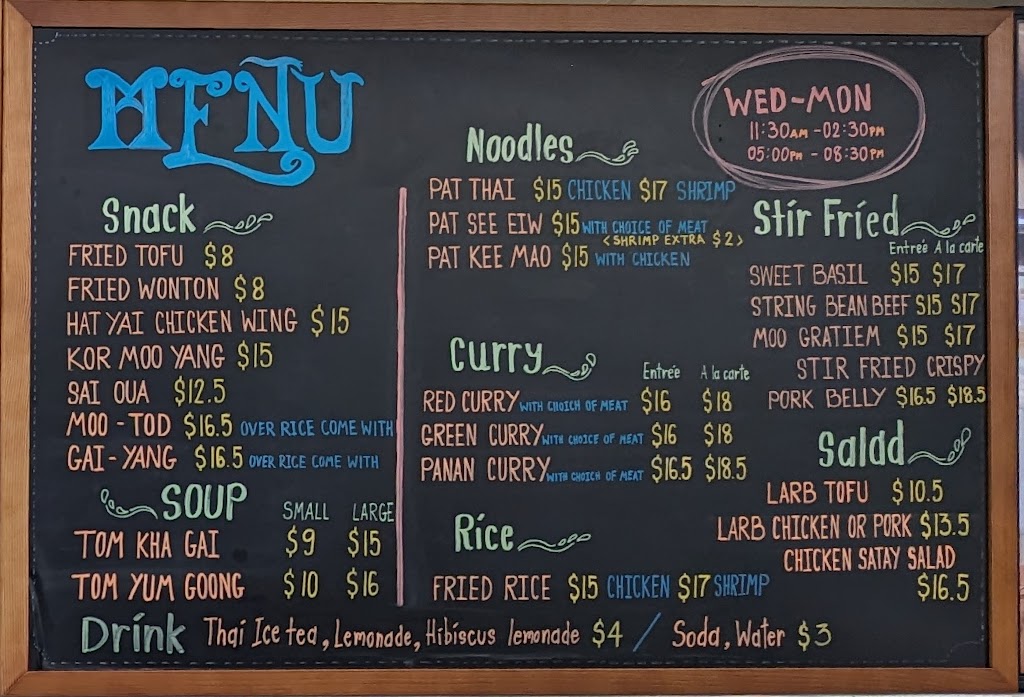 MENU
WED-MON
11:30AM - 02:30PM
05:00PM - 08:30PM
Snack
FRIED TOFU $8
FRIED WONTON $8
HAT YAI CHICKEN WING $15
KOR MOO YANG $15
SAI OUA $12.5
MOO - TOD $16.5 OVER RICE COME WITH
GAI - YANG $16.5 OVER RICE COME WITH
SOUP SMALL LARGE
TOM KHA GAI $9 $15
TOM YUM GOONG $10 $16
Noodles
PAT THAI $15 CHICKEN $17 SHRIMP
PAT SEE EIW $15 WITH CHOICE OF MEAT
<SHRIMP EXTRA $2>
PAT KEE MAO $15 WITH CHICKEN
Curry Entreé A la carte
RED CURRY WITH CHOICH OF MEAT $16 $18
GREEN CURRY WITH CHOICE OF MEAT $16 $18
PANAN CURRY WITH CHOICH OF MEAT $16.5 $18.5
Rice
FRIED RICE $15 CHICKEN $17 SHRIMP
Stir Fried
Entreé A la carte
SWEET BASIL $15 $17
STRING BEAN BEEF $15 $17
MOO GRATIEM $15 $17
STIR FRIED CRISPY
PORK BELLY $16.5 $18.5
Salad
LARB TOFU $10.5
LARB CHICKEN OR PORK $13.5
CHICKEN SATAY SALAD
$16.5
Drink Thai Ice tea, Lemonade, Hibiscus lemonade $4 / Soda, Water $3